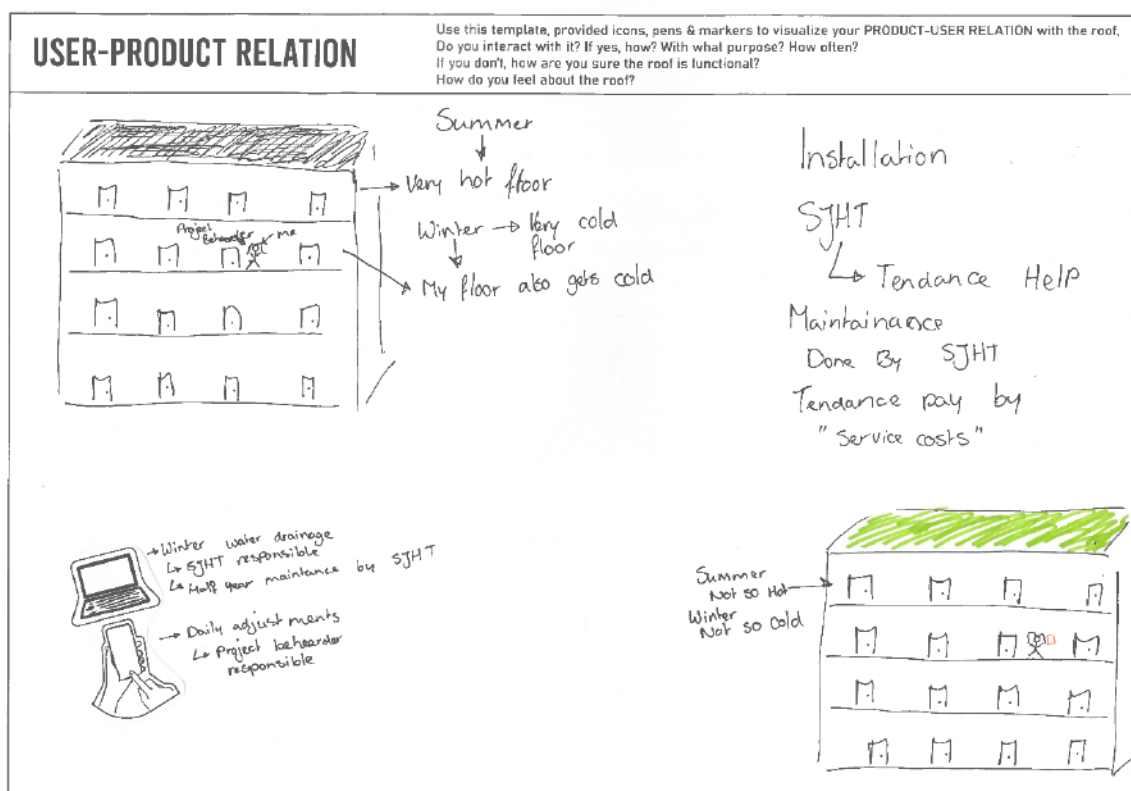 USER-PRODUCT RELATION
Use this template, provided icons, pens & markers to visualize your PRODUCT-USER RELATION with the roof.
Do you interact with it? If yes, how? With what purpose? How often?
If you don't, how are you sure the roof is functional?
How do you feel about the roof?
Summer
Very hot floor
Winter → Very cold
floor
My floor also gets cold
Project
Me
Installation
SJHT
Tendance Help
Maintainance
Done By SJHT
Tendance pay by
"Service costs"
Winter water drainage
SJHT responsible
Half year maintance by SJHT
Daily adjustments
Project behearder
responsible
Summer
Not so Hot
Winter
Not so Cold